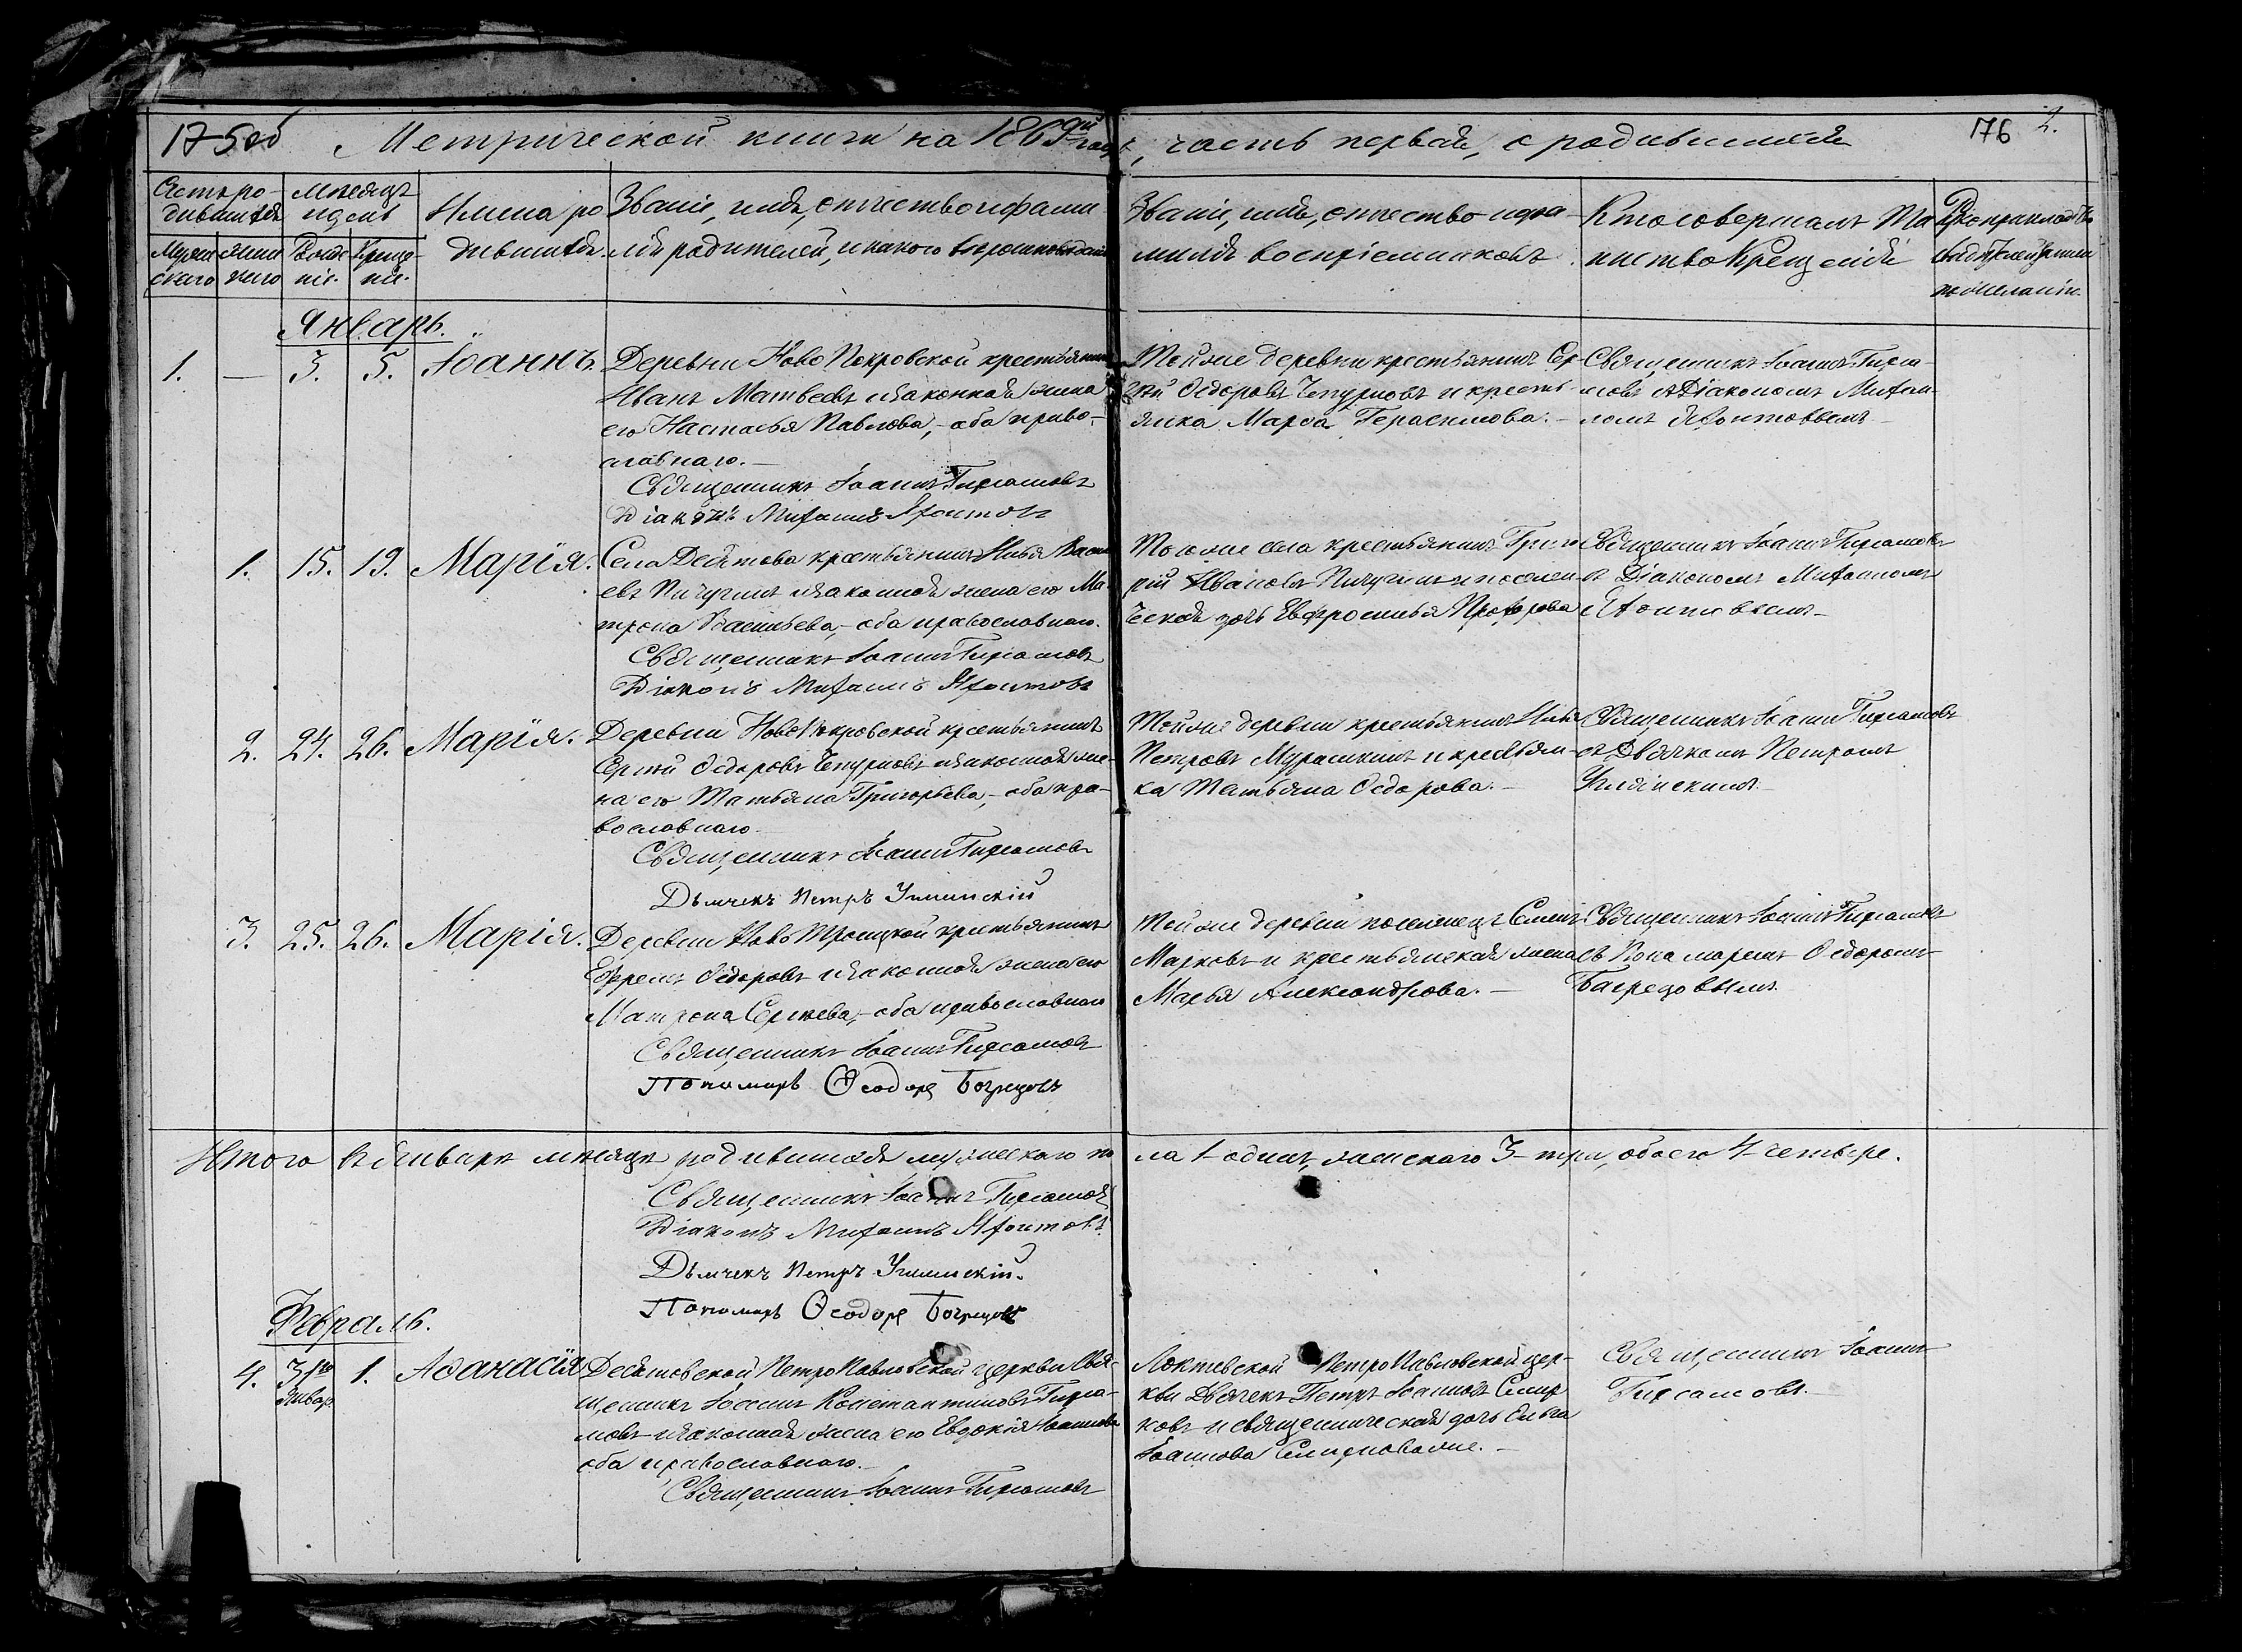 175об Метрической книги на 1869й годъ, часть первая, о родившихся 176 2.
Счетъ ро-
дившихся
Мужескаго
Женскаго
Мѣсяцъ
и день
Рожде-
ніе.
Креще-
ніе.
Имена ро
дившихся.
Званіе, имя, отчество и фами-
лія родителей, и какого вѣроисповѣданія
Званіе, имя, отчество и фа-
милія воспріемниковъ.
Кто совершалъ Та
инство Крещенія
по желанію.
Январь.
1. — 3. 5. Іоаннъ.
Деревни Ново Покровской крестьянинъ
Иванъ Матвеевъ и законная жена
его Настасья Павлова, — оба право-
славнаго. —
Священникъ Іоаннъ Гирсамовъ
Діаконъ Митрофанъ
Той же деревни крестьянинъ Сер-
гѣй Ѳедоровъ Чепурновъ и кресть-
янка Марѳа Герасимова. —
Священникъ Іоаннъ Гирса-
мовъ съ Діакономъ
1. 15. 19. Марія.
Села Десятова крестьянинъ Илья Васил
евъ Пичугинъ и законная жена его Ма-
трона Васильева, — оба православнаго.
Священникъ Іоаннъ Гирсамовъ
Діаконъ
Того же села крестьянинъ Григо
рій Ивановъ Пичугинъ и поселен-
ческая дочь Евфросинья Прохорова
Священникъ Іоаннъ Гирсамовъ
съ Діакономъ
2. 24. 26. Марія.
Деревни Ново Покровской крестьянинъ
Сергѣй Ѳедоровъ Чепурновъ и законная же-
на его Татьяна Григорьева, — оба пра-
вославнаго.
Священникъ Іоаннъ Гирсамовъ
Дьячекъ Петръ
Той же деревни крестьянинъ Илья
Петровъ Мурашкинъ и крестьян-
ка Татьяна Ѳедорова. —
Священникъ Іоаннъ Гирсамовъ
съ Дьячкомъ Петромъ
3. 25. 26. Марія.
Деревни Ново Троицкой крестьянинъ
Ефремъ Ѳедоровъ и законная жена его
Матрона Сергѣева, — оба православнаго
Священникъ Іоаннъ Гирсамовъ
Пономарь Ѳеодоръ Багрецовъ
Той же деревни поселенецъ Семенъ
Марковъ и крестьянская жена
Марья Александрова. —
Священникъ Іоаннъ Гирсамовъ
съ Пономаремъ Ѳедоромъ
Багрецовымъ.
Итого въ Январѣ мѣсяцѣ родившихся мужескаго по ла 1 одинъ, женскаго 3 — три, обоего 4 четверо.
Священникъ Іоаннъ Гирсамовъ
Діаконъ
Дьячекъ Петръ
Пономарь Ѳеодоръ Багрецовъ
Февраль.
4. 31го Январ 1. Аѳанасія
Десятовской Петро Павловской церкви Свя-
щенникъ Іоаннъ Константиновъ Гирса-
мовъ и законная жена его Евдокія Іоаннова
оба православнаго. —
Священникъ Іоаннъ Гирсамовъ
Локтевской Петро Павловской цер-
кви Дьячекъ Петръ Іоанновъ Смир
новъ и священническая дочь Ольга
Іоаннова Смирнова же. —
Священникъ Іоаннъ
Гирсамовъ. —